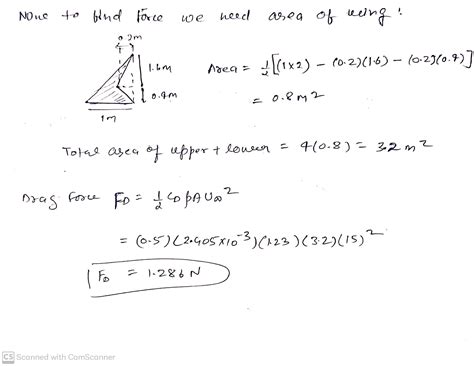 None to find Force we need area of wing:
0.2m
1.6m
0.4m
1m
Area = 1/2[(1×2) - (0.2)(1.6) - (0.2)(0.4)]
= 0.8m2
Total area of upper + lower = 4(0.8) = 3.2 m2
Drag Force FD = 1/2 CD ρAU∞2
= (0.5)(2.405×10-3)(1.23)(3.2)(15)2
FD = 1.286 N
CS Scanned with CamScanner